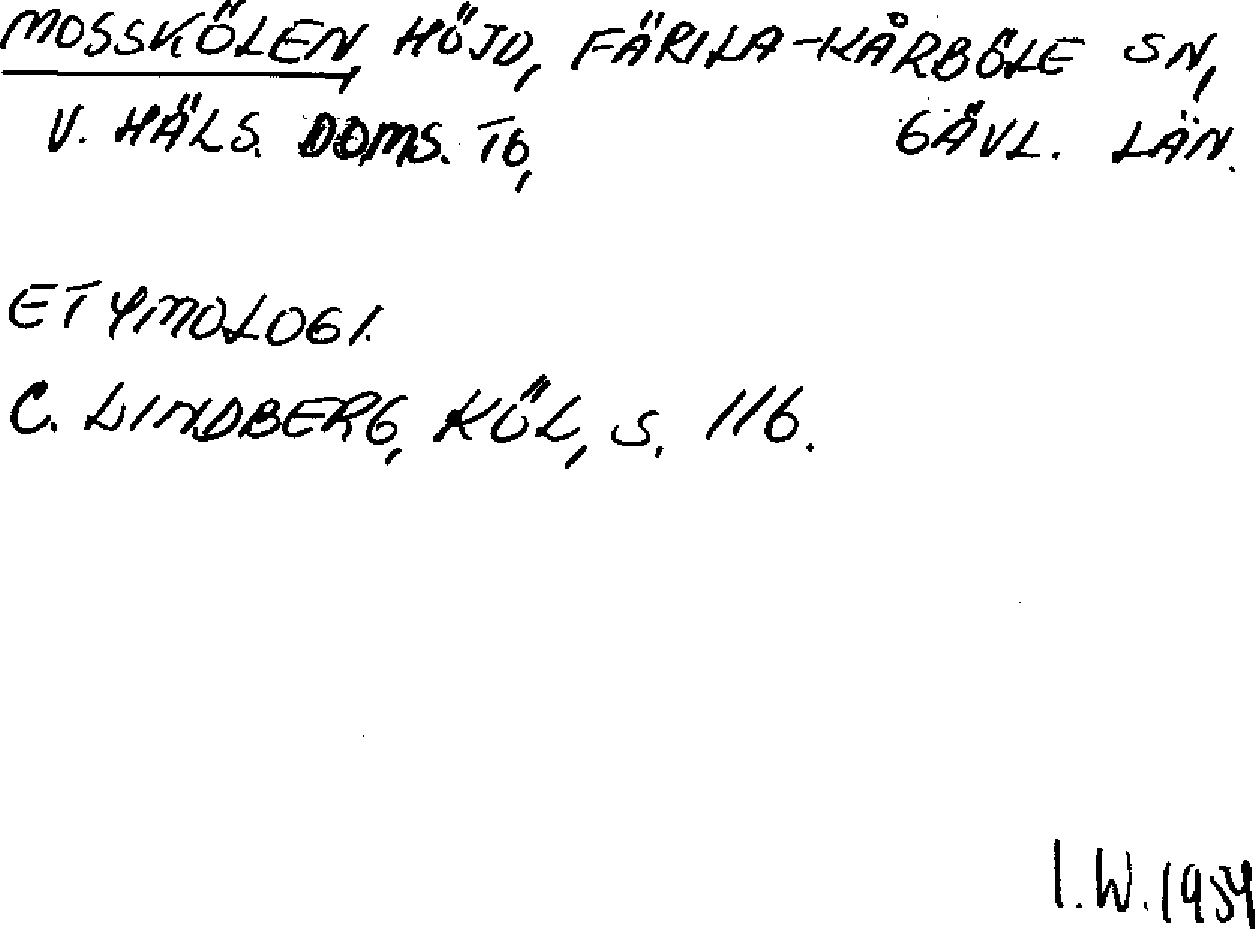 MOSSKÖLEN, HÖJD, FÄRILA-KÅRBÖLE SN,
V. HÄLS. DOMS. TG, GÄVL. LÄN.
ETYMOLOGI.
C. LINDBERG, KÖL, S. 116.
I.W. 1954